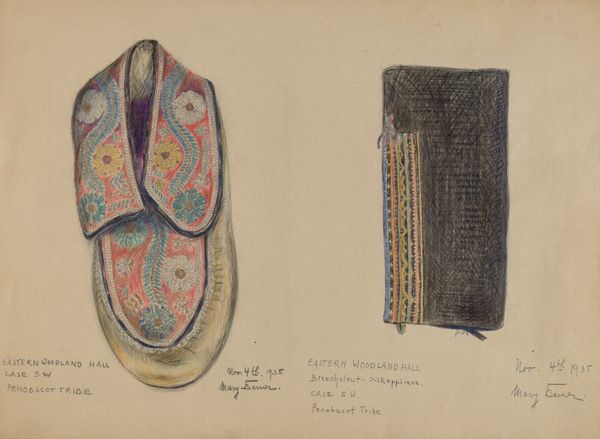 EASTERN WOODLAND HALL
CASE 5.W
PENOBSCOT TRIBE
Nov. 4th, 1935
Mary
EASTERN WOODLAND HALL
Breechclout - Silk applique.
CASE 5 W.
Penobscot Tribe
Nov. 4th 1935
Mary